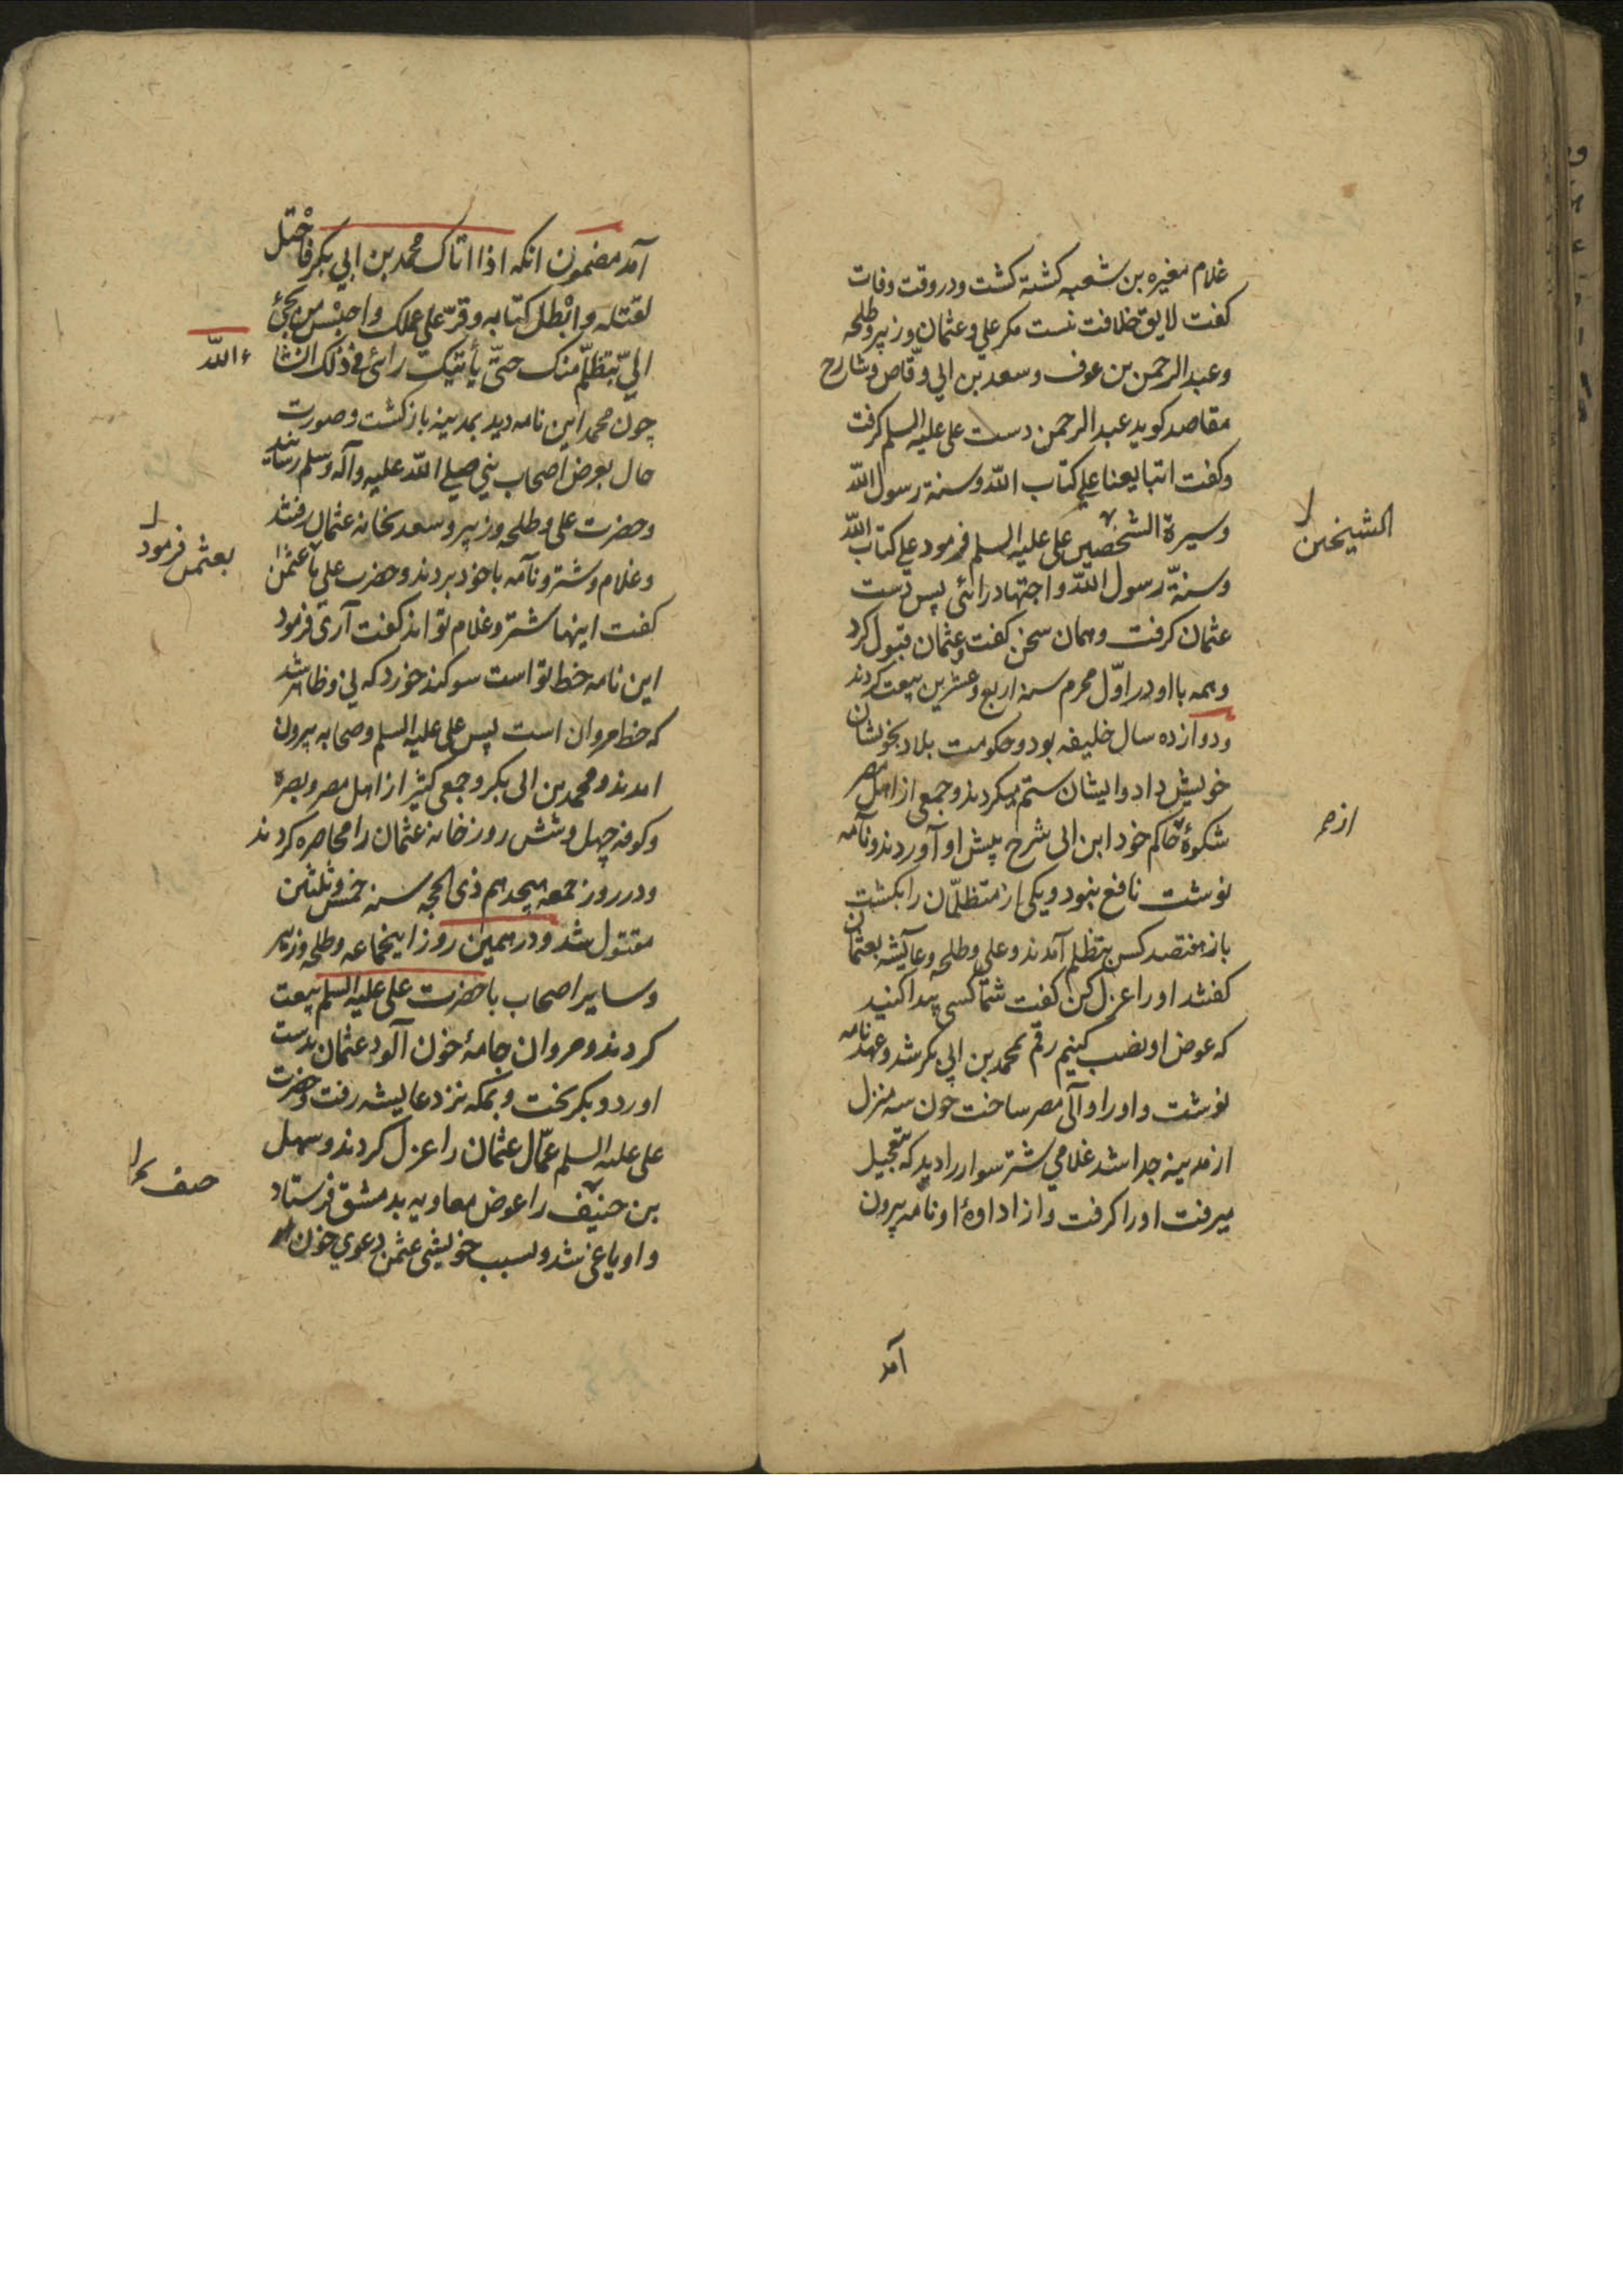 غلام مغیره بن شعبه کشته کشت ودر وقت وفات
کفت لایق خلافت نست مکر علي وعثمان وزبیر وطلحه
وعبد الرحمن بن عوف وسعد بن ابي وقّاص وشارح
مقاصد کوید عبد الرحمن دست علی علیه السلم کرفت
وکفت اتبایعنا علي کتاب اللّه وسنة رسول اللّه
وسیرة الشخصین علی علیه السلم فرمود علي کتاب اللّه
الشیخین
وسنّة رسول اللّه واجتهاد رائی پس دست
عثمان کرفت وهمان سخن کفت وعثمان قبول کرد
وهمه با او در اوّل محرم سنة اربع وعشرین بیعت کردند
ودوازده سال خلیفه بود وحکومت بلاد بخویشان
خویش داد وایشان ستم میکردند وجمعی از اهل مصر
شکوهٔ حاکم خود ابن ابی شرح پیش او آوردند ونامه
نوشت نافع نبود ویکی از متظلّمان را بکشت
باز هفتصد کس بتظلم آمدند وعلی وطلحه وعایشه بعثمان
کفتند او را عزل کن کفت شما کسی پیدا کنید
که عوض او نصب کنیم رقم بمحمد بن ابي بکر شد وعهدنامه
نوشت واورا والی مصر ساخت چون سه منزل
از مدینه جدا شد غلامي شتر سوار را دید که بتعجیل
میرفت اورا کرفت واز اداوهٔ او نامه بیرون
آمد
آمد مضمون انکه اذا اتاک محمد بن ابي بکر فاحتل
لقتله وابْطل کتابه وقرّ علی عملک واحبْس من یجئ
اليّ بتظلّم منک حتّی یأتیک رائی في ذلک انشا
ء اللّه
چون محمد این نامه دید بمدینه باز کشت وصورت
حال بعرض اصحاب نبي صلي اللّه علیه وآله وسلم رسانید
وحضرت علی وطلحه وزبیر وسعد بخانه عثمان رفتند
وغلام وشتر ونامه با خود بردند وحضرت علی با عثمن
بعثمن فرمود
کفت اینها شتر وغلام تواند کفت آری فرمود
این نامه خط تو است سوکند خورد که نی وظاهر شد
که خط مروان است پس علی علیه السلم وصحابه بیرون
امدند ومحمد بن ابی بکر وجمعی کثیر از اهل مصر وبصره
وکوفه چهل وشش روز خانه عثمان را محاصره کردند
ودر روز جمعه هیجدهم ذی الحجه سنه خمس وثلثین
مقتول شد ودر همین روز اینجماعه وطلحه وزبیر
وسایر اصحاب با حضرت علی علیه السلم بیعت
کردند ومروان جامهٔ خون آلود عثمان بدست
اورد وبکریخت وبمکه نزد عایشه رفت وحضرت
علی علیه السلم عمّال عثمان را عزل کردند وسهل
بن حنیف را عوض معاویه بدمشق فرستاد
واو یاغی شد وبسبب خویشی عثمن دعوي خون